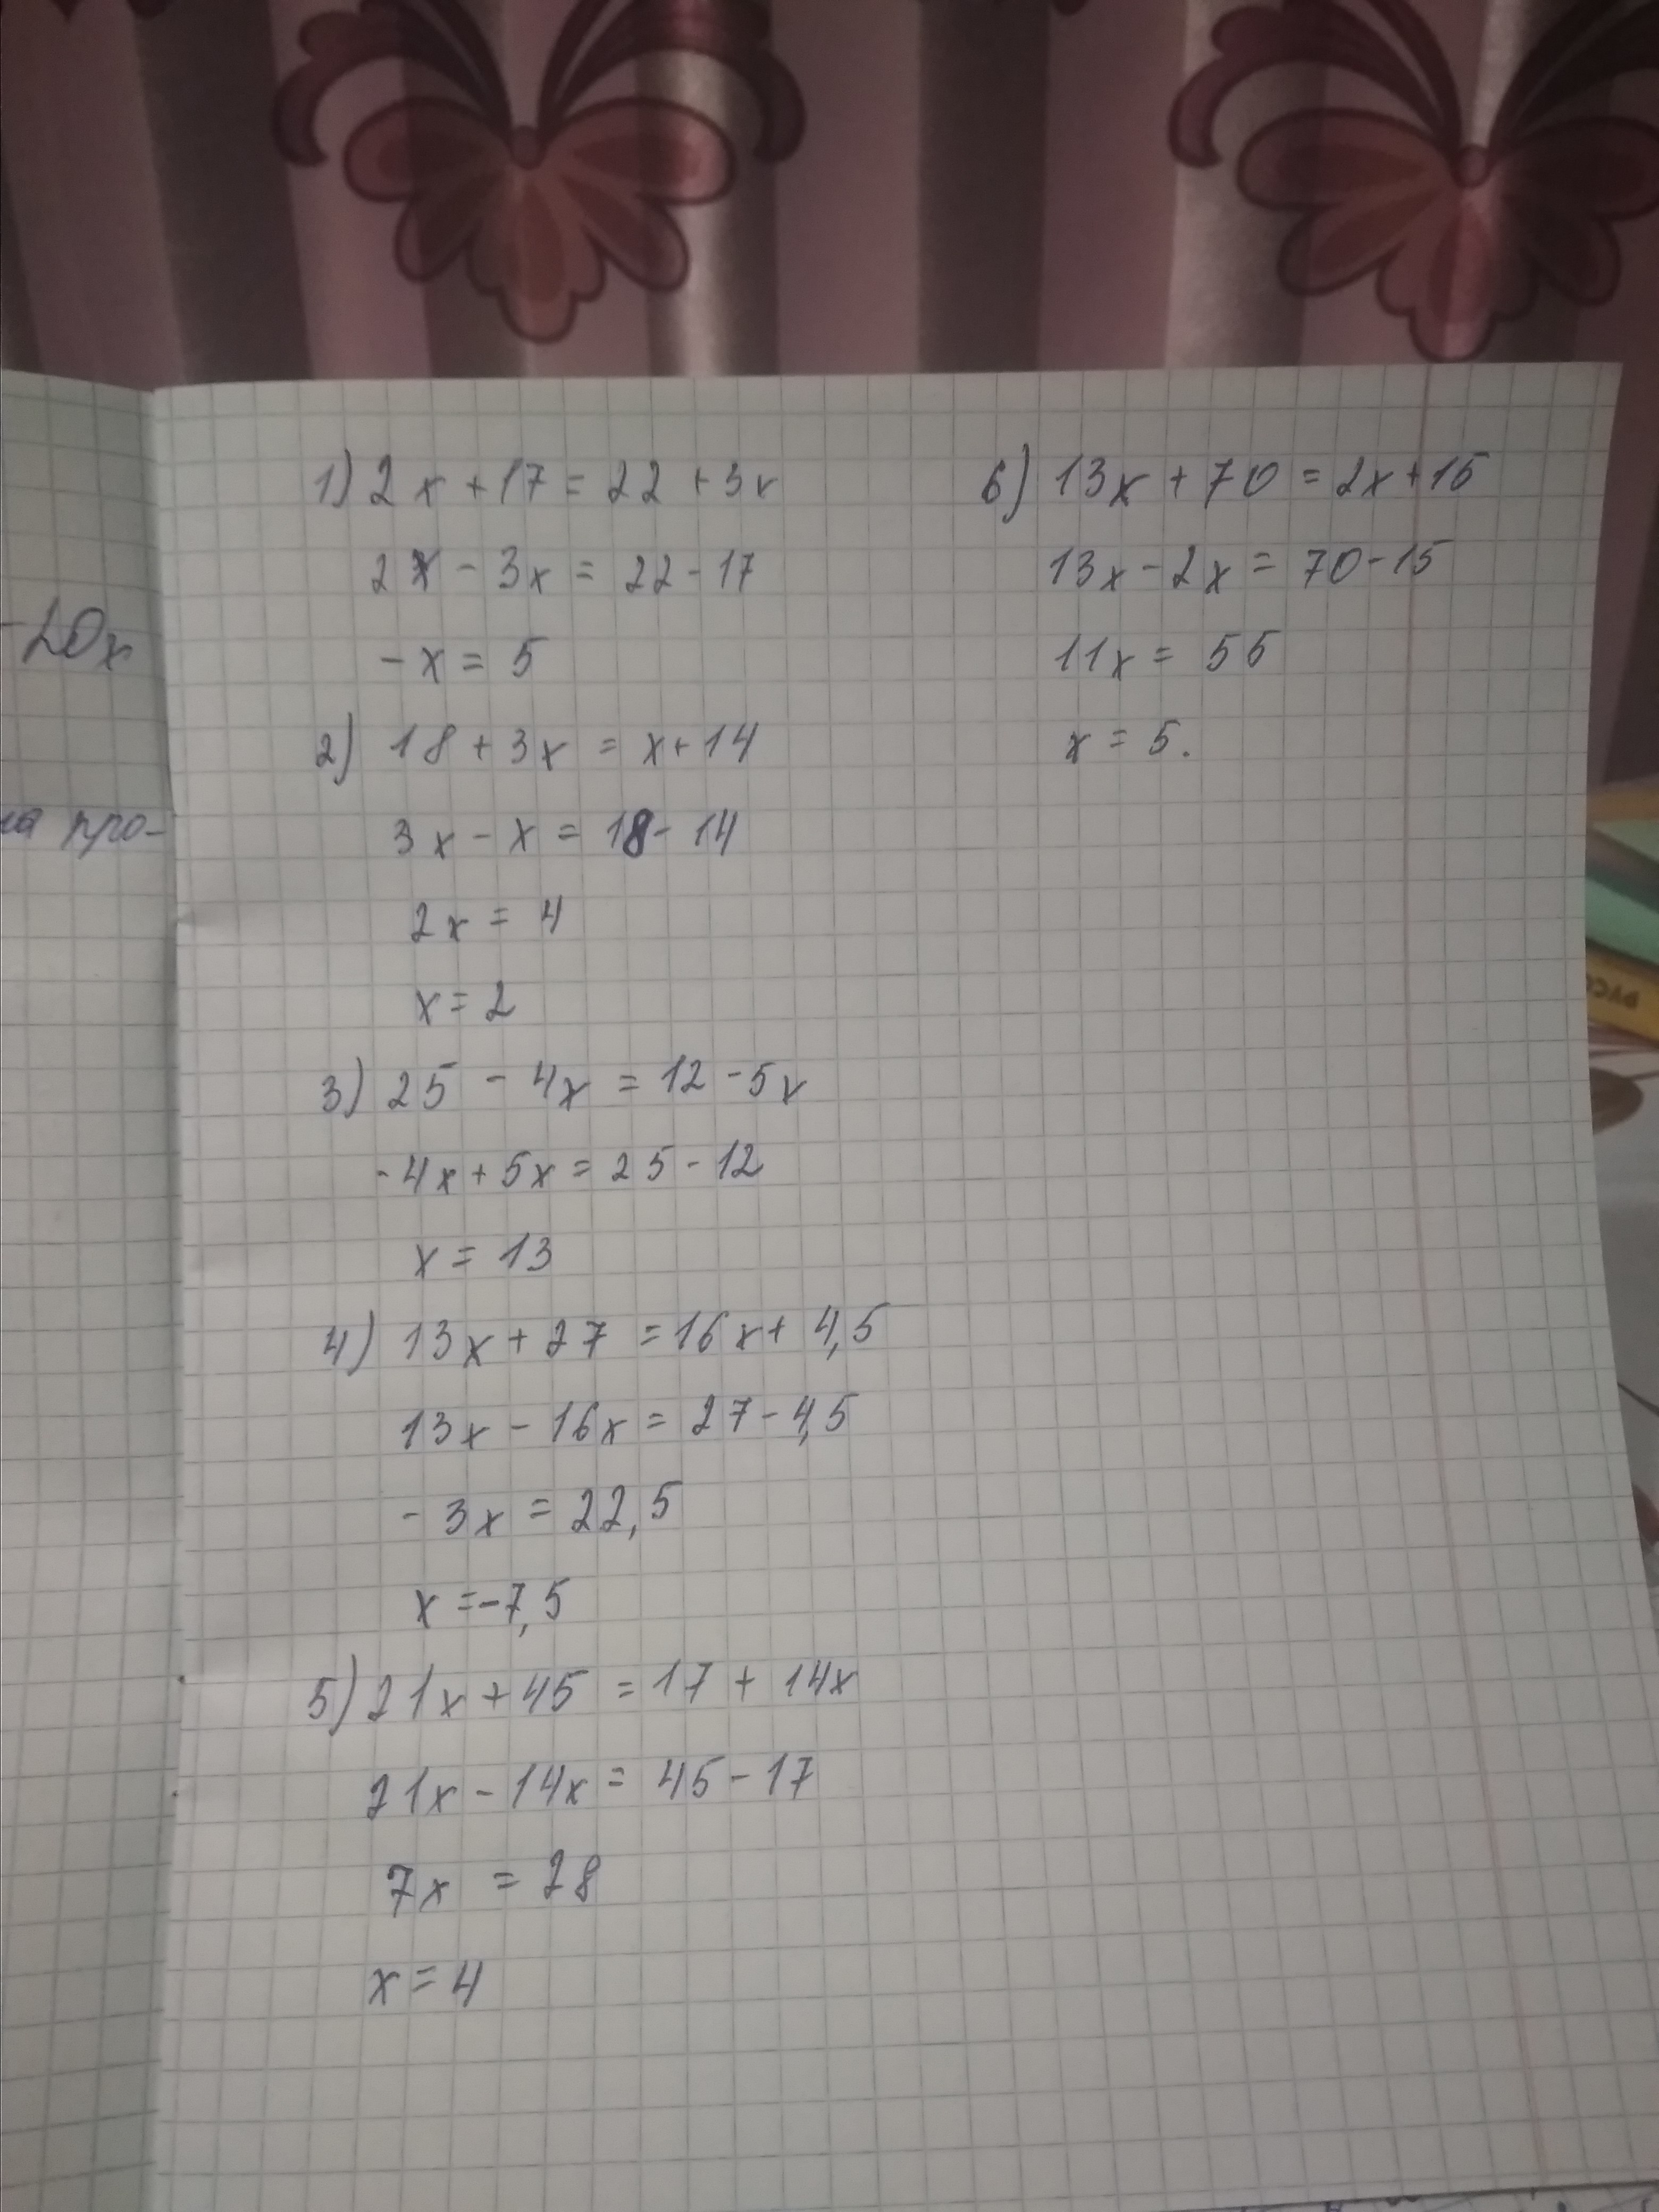 -20x
на про-
1) 2x + 17 = 22 + 3x
2x - 3x = 22 - 17
- x = 5
2) 18 + 3x = x + 14
3x - x = 18 - 14
2x = 4
x = 2
3) 25 - 4x = 12 - 5x
- 4x + 5x = 25 - 12
x = 13
4) 13x + 27 = 16x + 4,5
13x - 16x = 27 - 4,5
- 3x = 22,5
x = -7,5
5) 21x + 45 = 17 + 14x
21x - 14x = 45 - 17
7x = 28
x = 4
6) 13x + 70 = 2x + 15
13x - 2x = 70 - 15
11x = 55
x = 5.